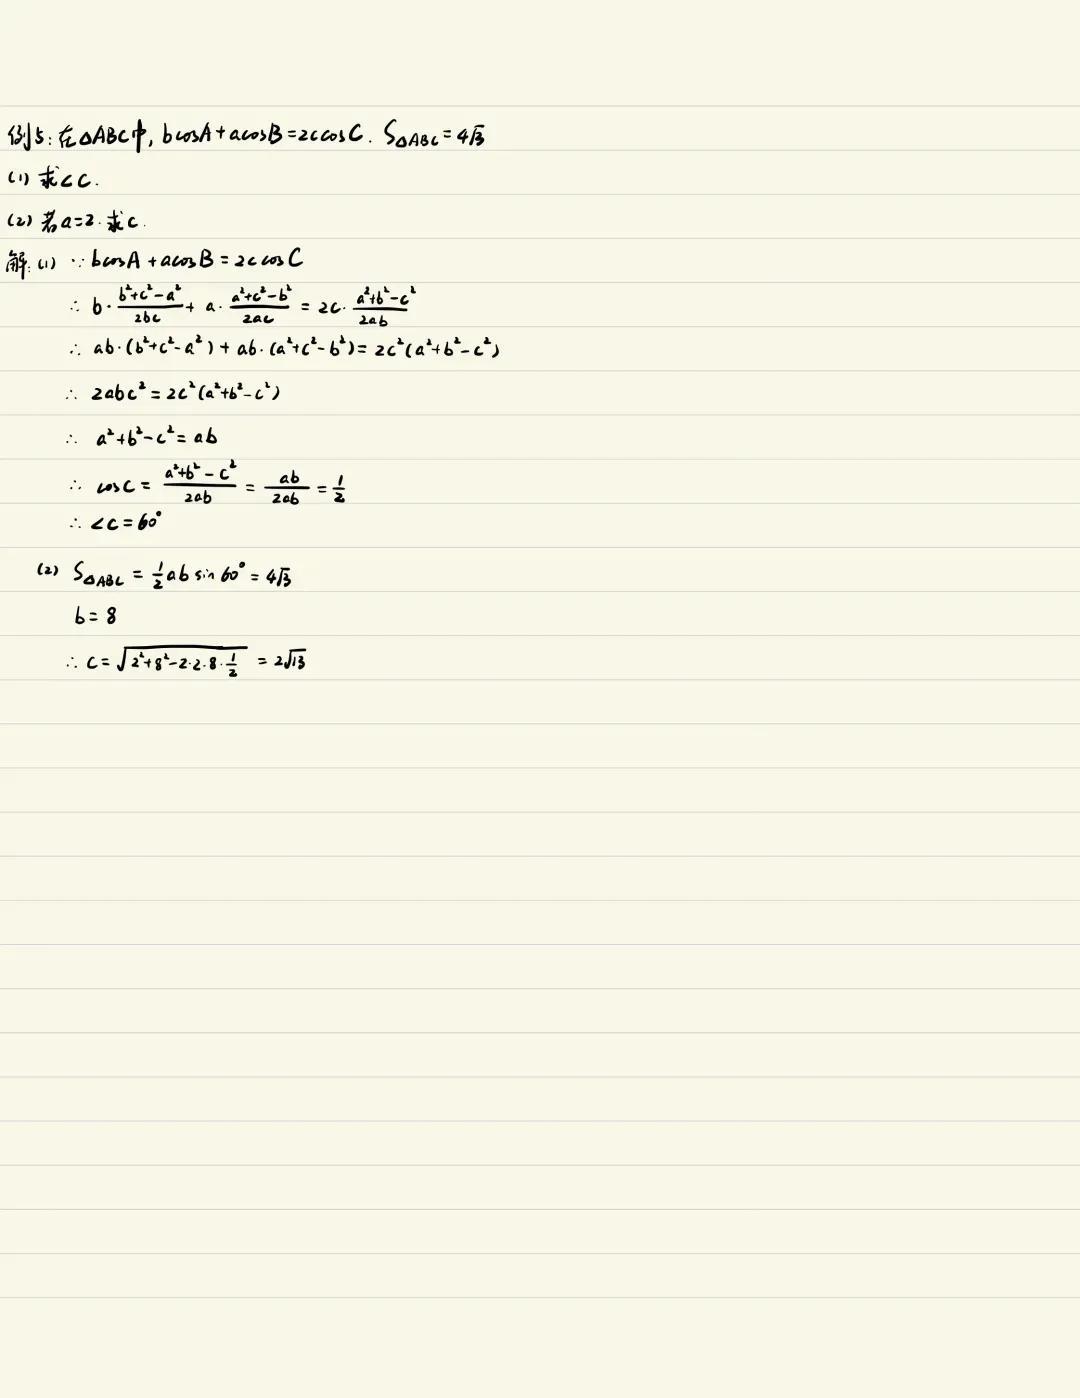 例5:在△ABC中, bcosA+acosB=2ccosC. S△ABC=4√3
(1) 求∠C.
(2) 若a=2.求c.
解:(1) ∵ bcosA+acosB=2ccosC
∴ b·(b²+c²-a²)/(2bc) + a·(a²+c²-b²)/(2ac) = 2c·(a²+b²-c²)/(2ab)
∴ ab·(b²+c²-a²)+ab·(a²+c²-b²)=2c²(a²+b²-c²)
∴ 2abc²=2c²(a²+b²-c²)
∴ a²+b²-c²=ab
∴ cosC=(a²+b²-c²)/(2ab)=ab/(2ab)=1/2
∴ ∠C=60°
(2) S△ABC=1/2absin60°=4√3
b=8
∴ C=√(2²+8²-2·2·8·1/2)=2√13